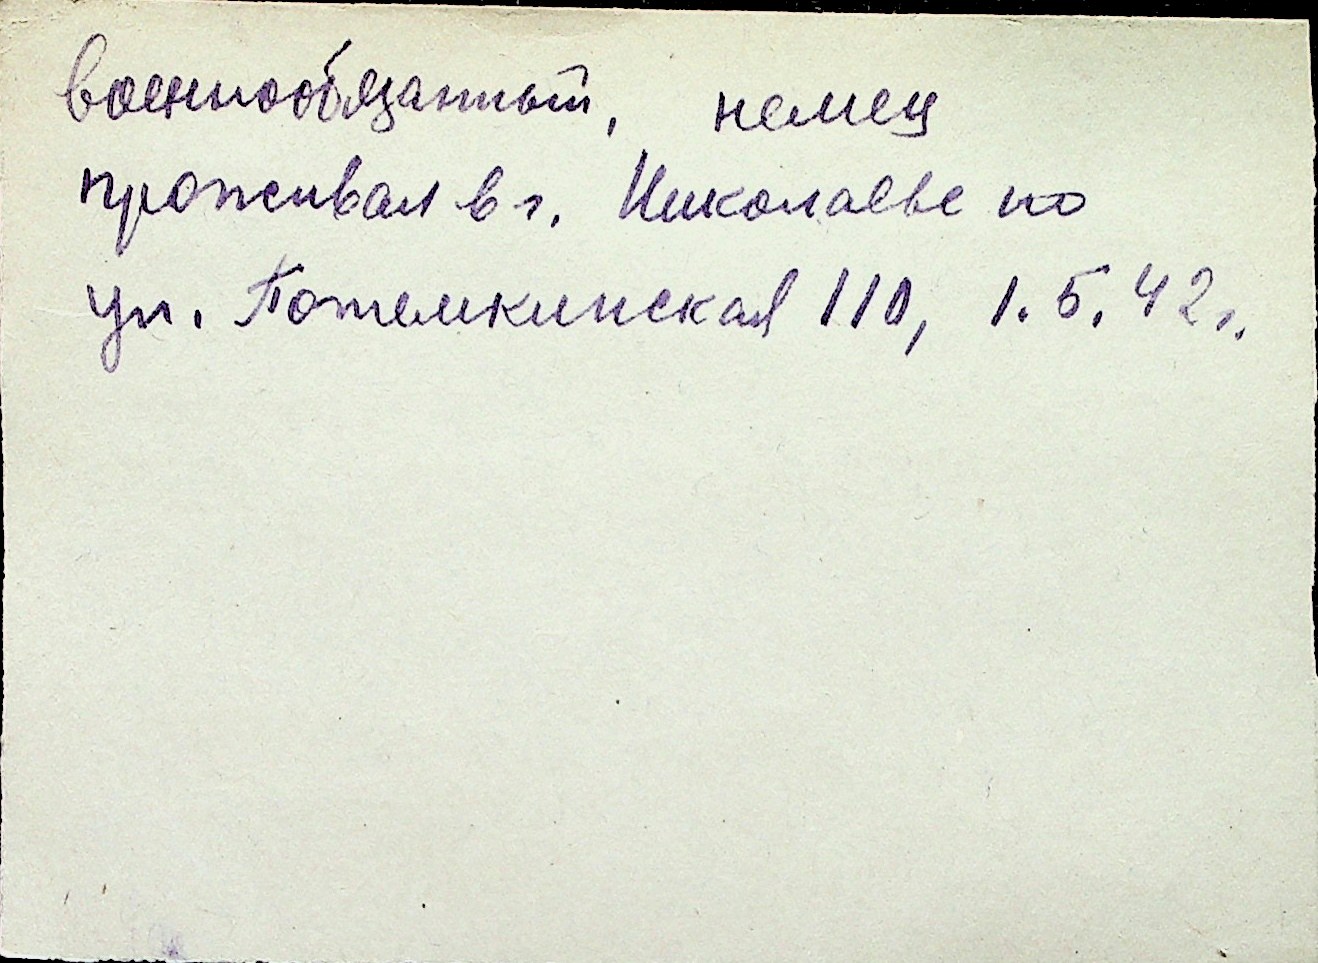 военнообязанный, немец
проживал в г. Николаеве по
ул. Потемкинская 110, 1.5.42 г.